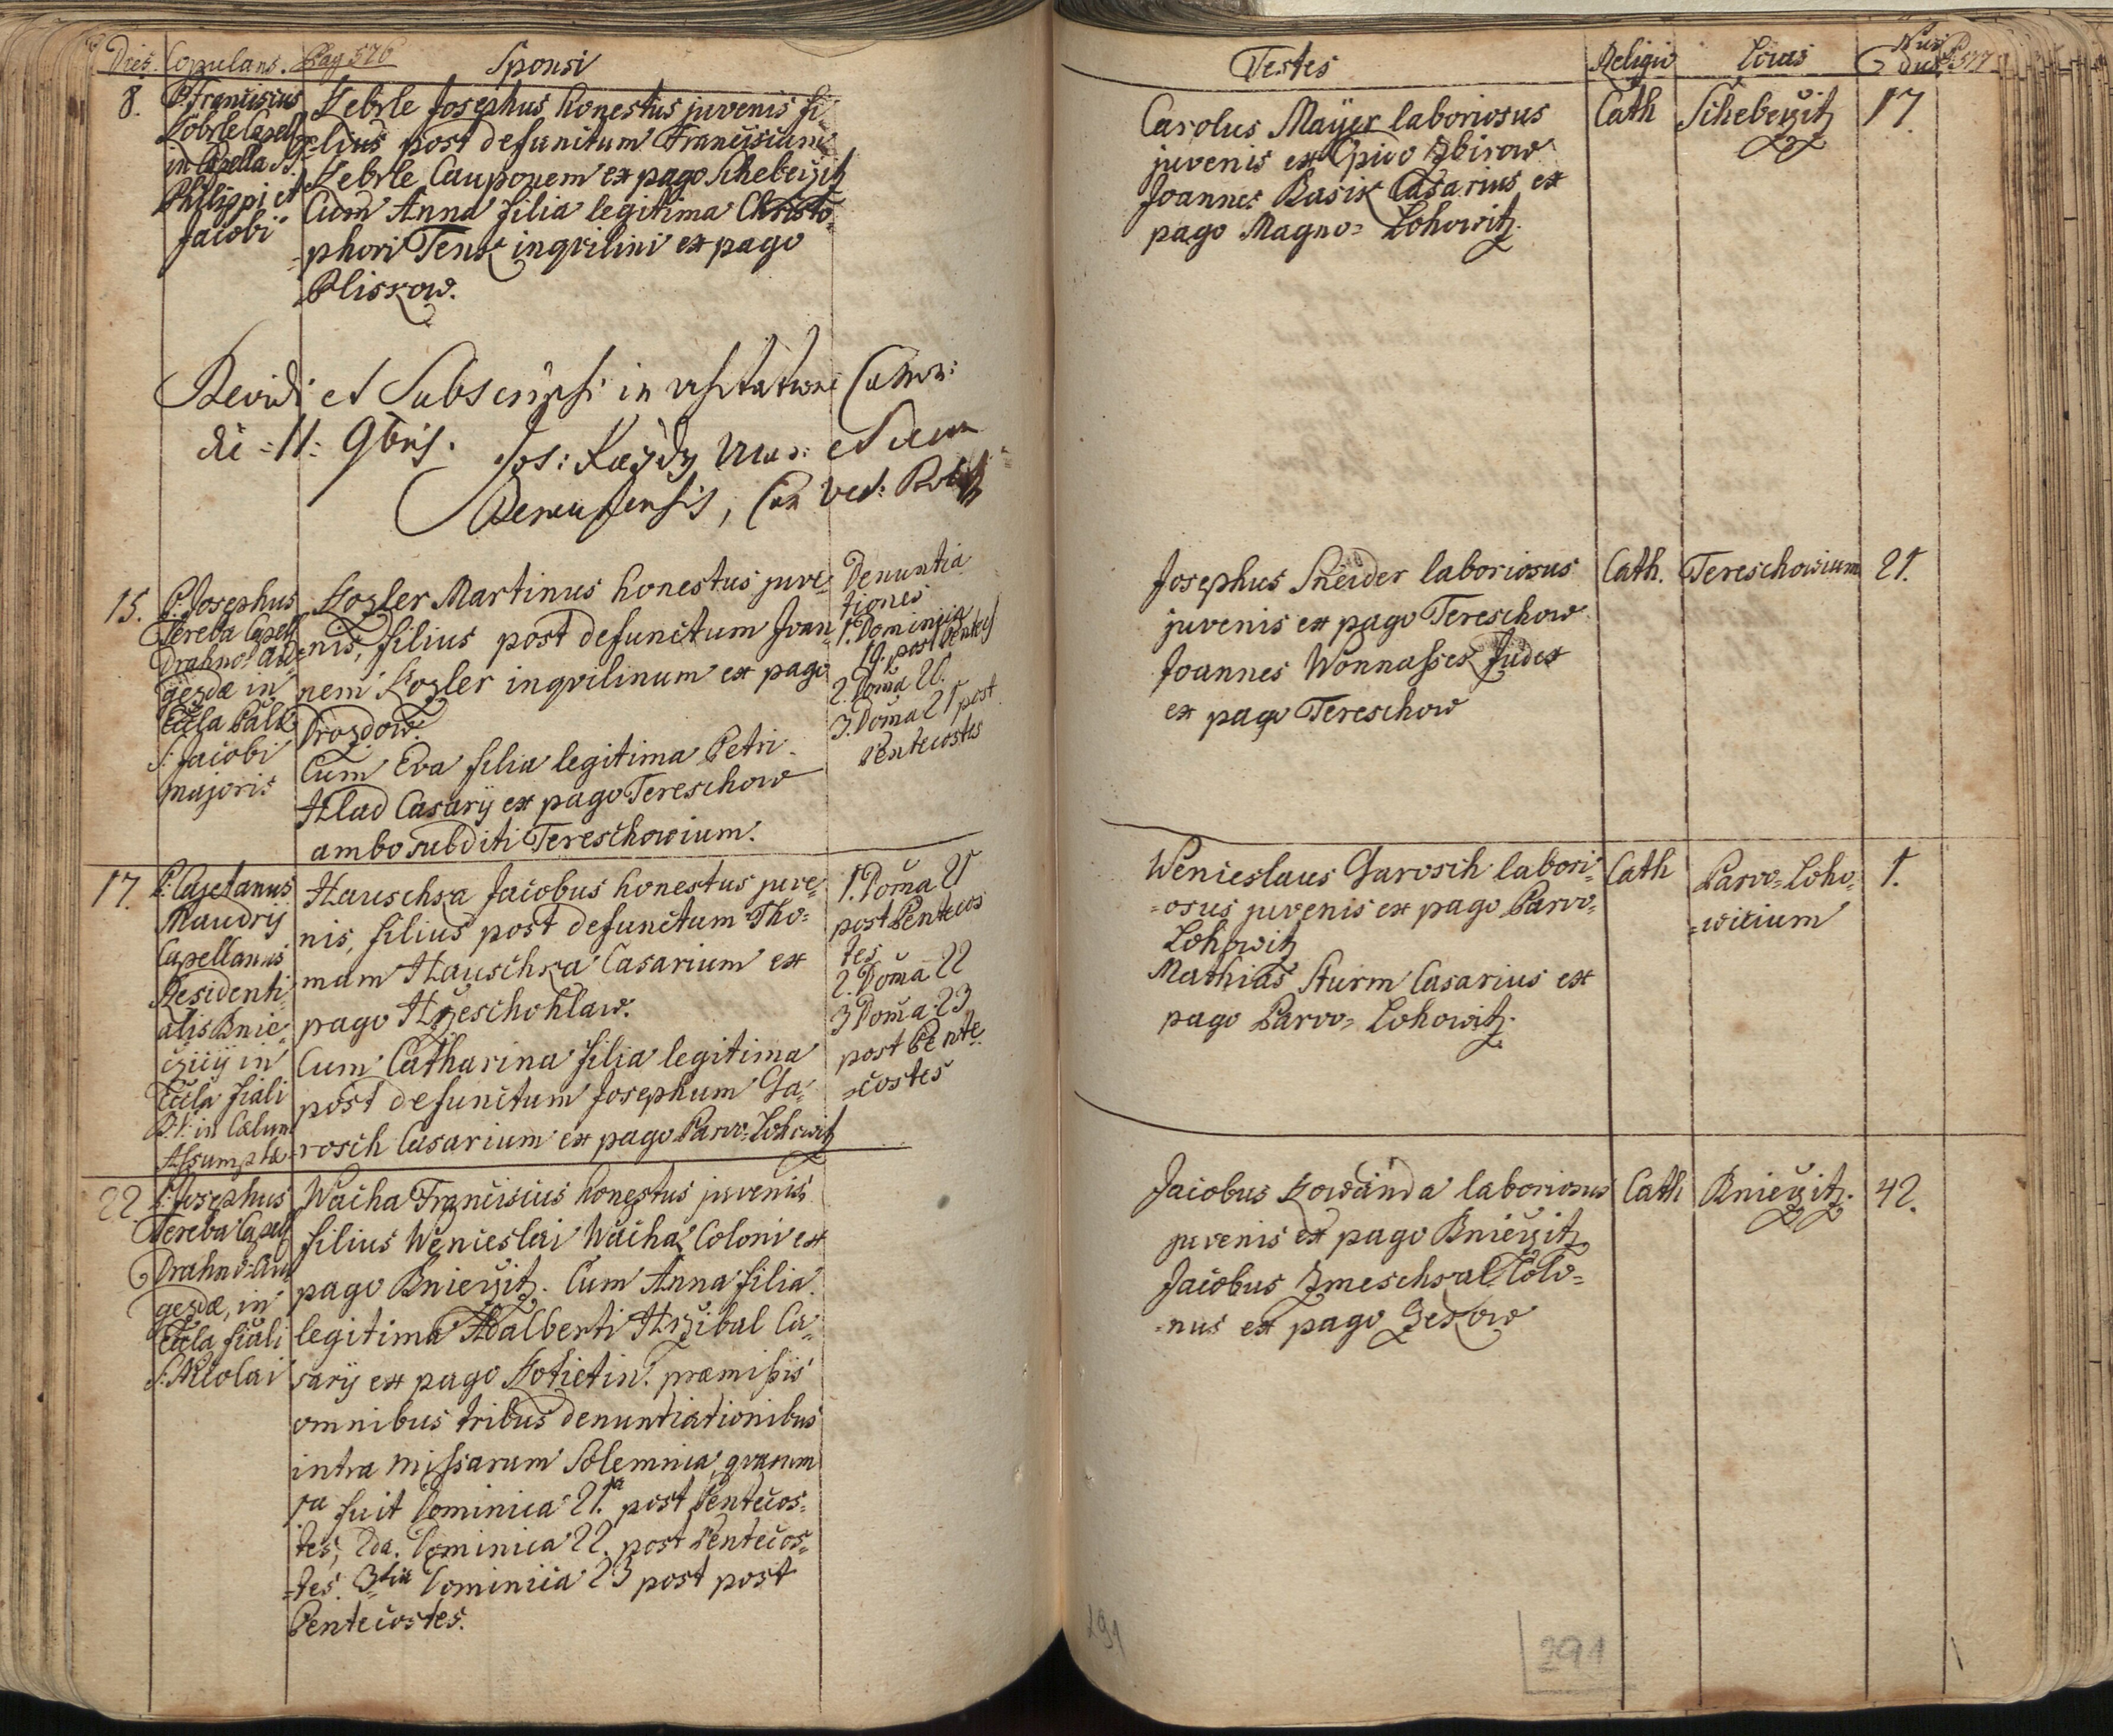 Dies. Copulans. Pag 576 Sponsi
8. P. Franciscus
Kebrle Josephus honestus juvenis fi-
lius post defunctum Franciscum
Kebrle Cauponem ex pago Scheberzitz
Cum Anna filia legitima Christo-
phori Tenk inqvilini ex pago
Pliskow.
in Capella SS.
Philippi et
Jacobi
Revidi et Subscripsi in visitatione
die 11. 9bris. Jos:
15. P. Josephus
Tereba Capell
Drahno-Au-
gezdæ in
Eccla
S. Jacobi
majoris
Kogler Martinus honestus juve-
nis, filius post defunctum Joan-
nem Kogler inqvilinum ex pago
Drozdow.
Cum Eva filia legitima Petri
Hlad Casarij ex pago Tereschow
ambo subditi Tereschowium.
Denuntia
tiones
1. Dominica
19. post Pentec
2. Doma 20.
3. Doma 21 post
Pentecostes
17. P. Cajetanus
Maudrij
Capellanus
Residenti-
alis Bnie-
in
Eccla filiali
B. V. in Cœlum
Assumptæ
Hauschka Jacobus honestus juve-
nis, filius post defunctum Tho-
mam Hauschka Casarium ex
pago Hzeschohlaw.
Cum Catharina filia legitima
post defunctum Josephum Ja-
rosch Casarium ex pago Parvo-Lohowitz
1. Doma 21
post Pentecos
tes
2. Doma 22
3 Doma 23
post Pente-
costes
22. P. Josephus
Tereba Capell
Drahno-Au
gezdæ, in
Eccla filiali
S. Nicolai
Wacha Franciscus honestus juvenis
filius Wenceslai Wacha Coloni ex
pago Bnieczitz. Cum Anna filia
legitima Adalberti Hrzibal Ca-
sarij ex pago Kotietin. præmissis
omnibus tribus denuntiationibus
intra missarum Solemnia, qvarum
1a fuit Dominica 21a post Pentecos-
tes, 2da. Dominica 22. post Pentecos-
tes. 3tia Dominica 23 post post
Pentecostes.
Testes Religio Locus Nus
Carolus Mayer laboriosus Cath Scheberzitz 17
juvenis ex Opido Zbirow
Joannes Basik Casarius ex
pago Magno- Lohowitz.
Josephus Sneider laboriosus Cath. Tereschowium 21.
juvenis ex pago Tereschow
Joannes Wonnassek Judex
ex pago Tereschow
Wenceslaus Jarosch labori- Cath Parvo-Loho- 1.
osus juvenis ex pago Parvo- -wicium
Lohowitz
Mathias Sturm Casarius ex
pago Parvo- Lohowitz.
Jacobus Kowanda laboriosus Cath Bnieczitz. 42.
juvenis ex pago Bnieczitz
Jacobus Zmeschkal Colo-
nus ex pago Jezow
291
291